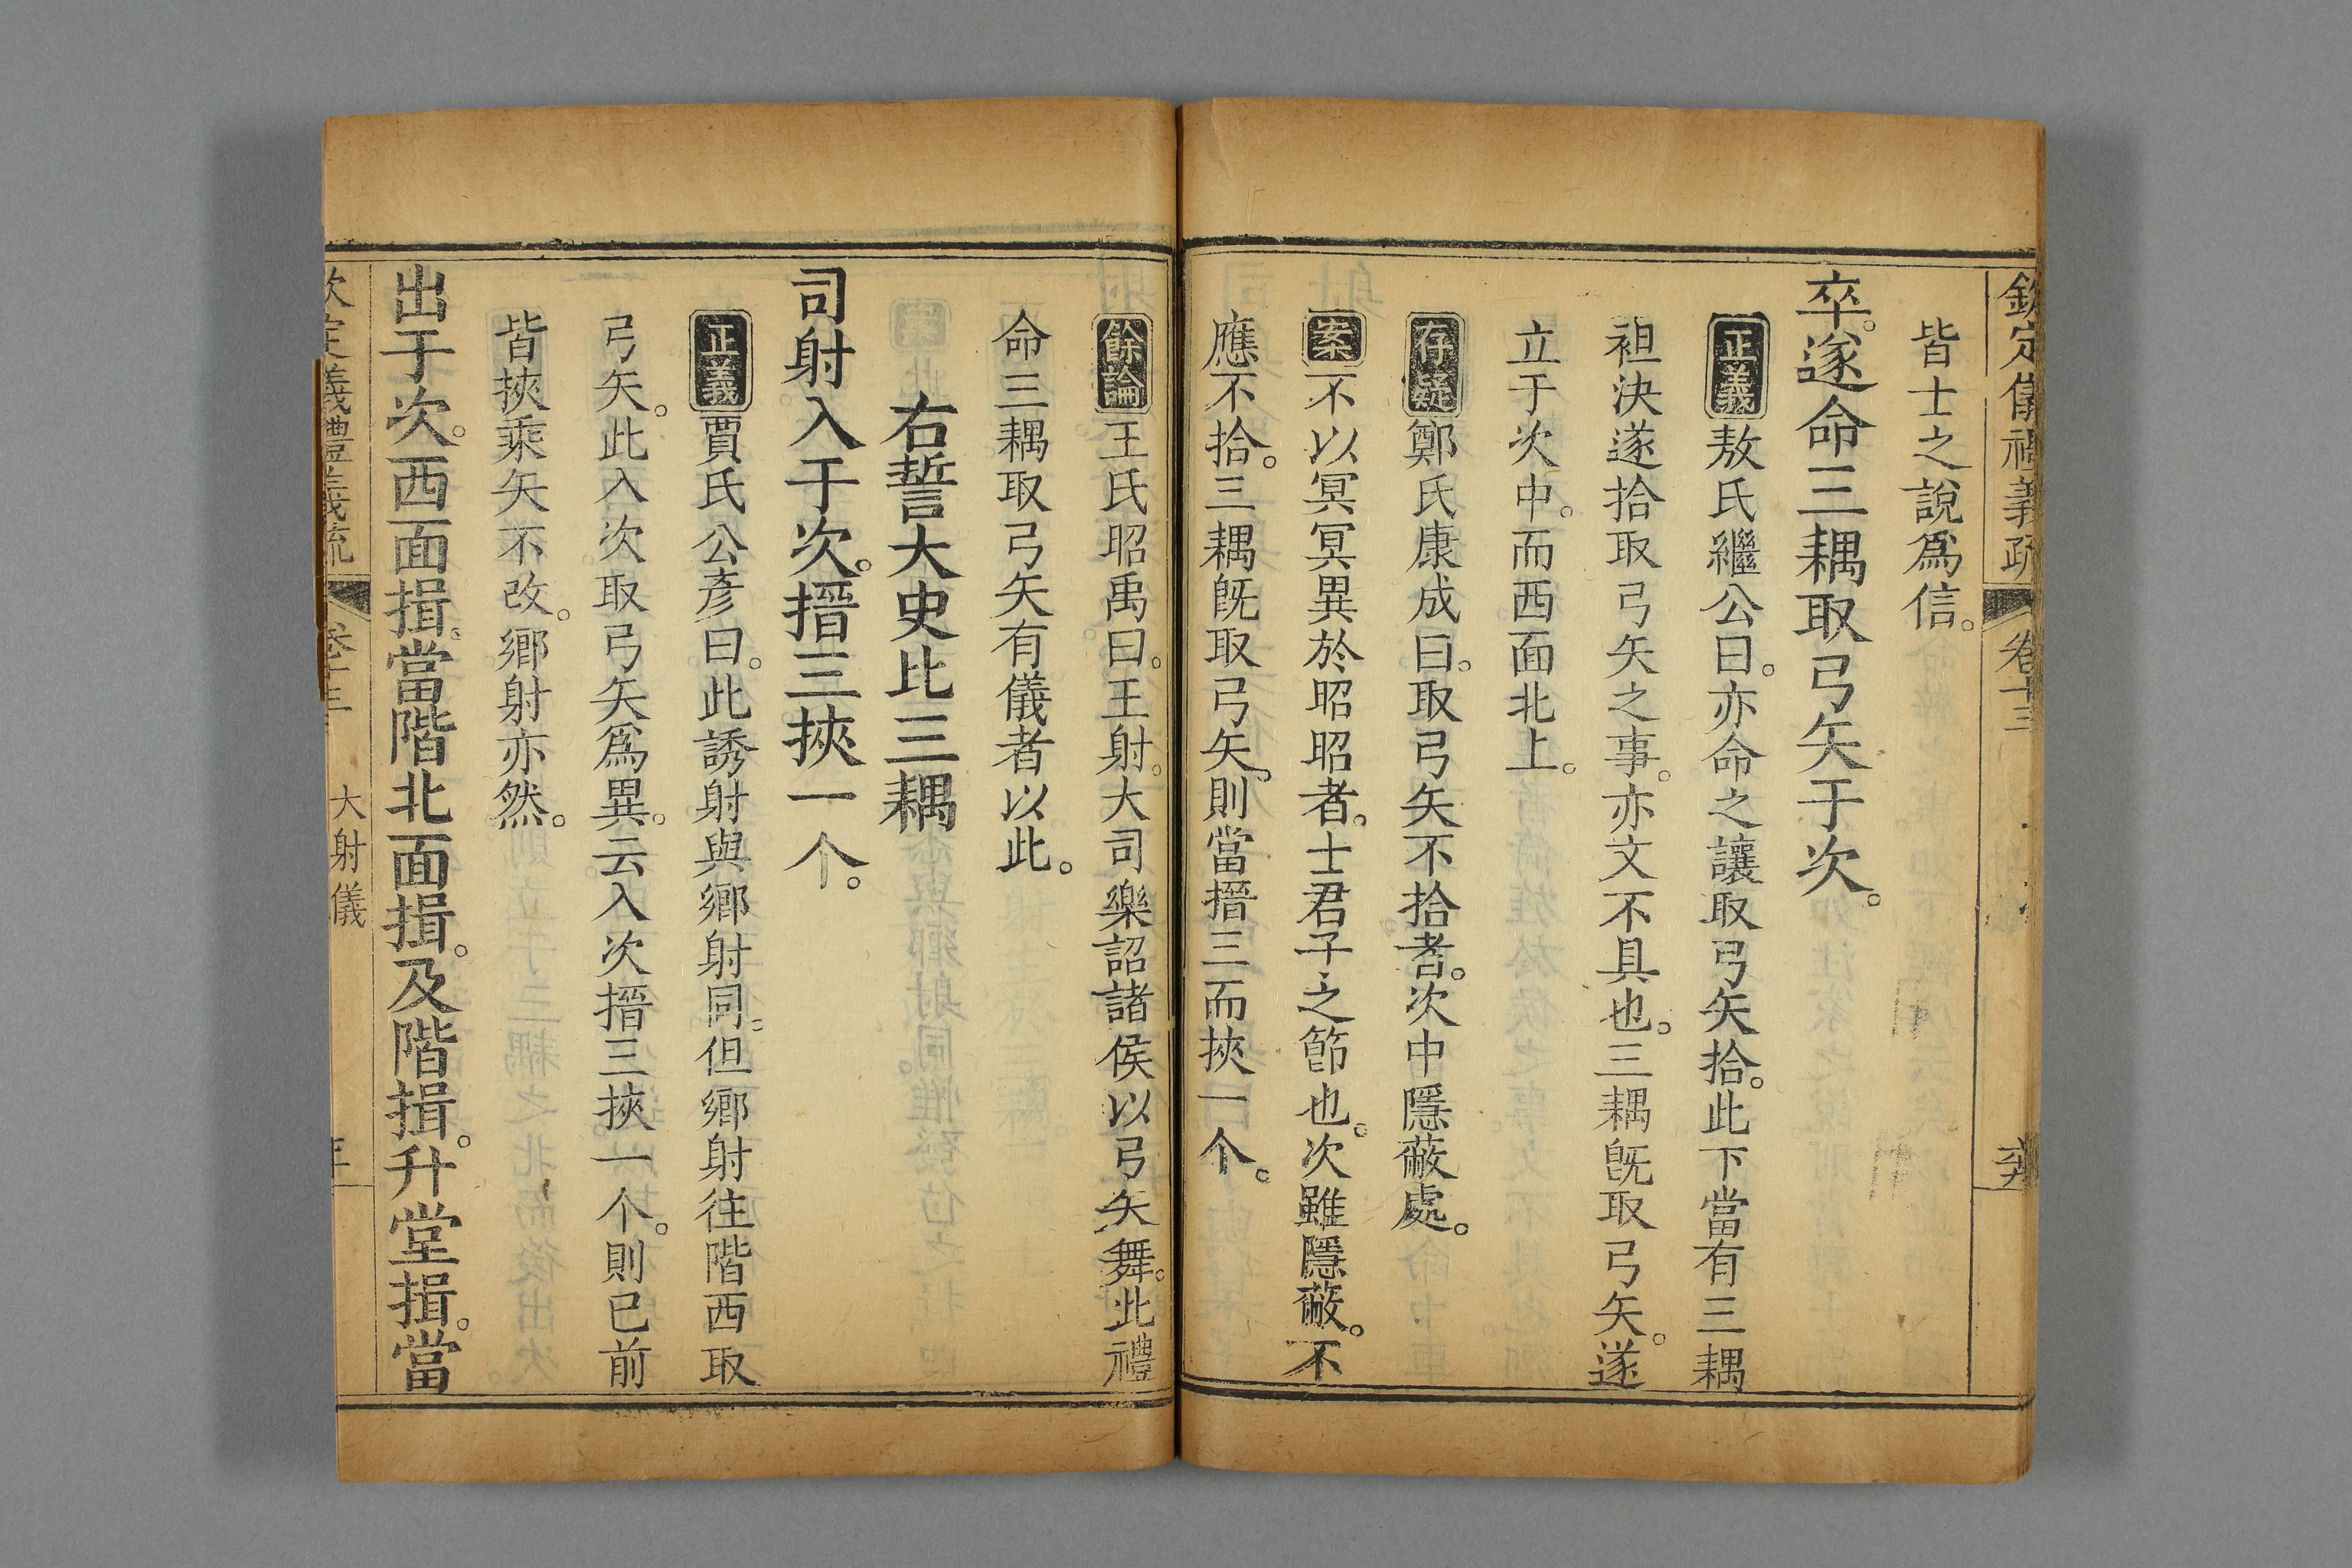 欽定儀禮義疏 卷十三
皆士之說爲信。
卒。遂命三耦取弓矢于次。
正義敖氏繼公曰。亦命之讓取弓矢拾。此下當有三耦
袒決遂拾取弓矢之事。亦文不具也。三耦旣取弓矢。遂
立于次中。而西面北上。
存疑鄭氏康成曰。取弓矢不拾者。次中隱蔽處。
案不以冥冥異於昭昭者。士君子之節也。次雖隱蔽。不
應不拾。三耦旣取弓矢。則當搢三而挾一个。
餘論王氏昭禹曰。王射。大司樂詔諸侯以弓矢舞。此禮
命三耦取弓矢有儀者以此。
右誓大史比三耦
司射入于次。搢三挾一个。
正義賈氏公彥曰。此誘射與鄉射同。但鄉射往階西取
弓矢。此入次取弓矢爲異。云入次搢三挾一个。則已前
皆挾乘矢不改。鄉射亦然。
出于次。西面揖。當階北面揖。及階揖。升堂揖。當
欽定義禮義疏 卷十三 大射儀